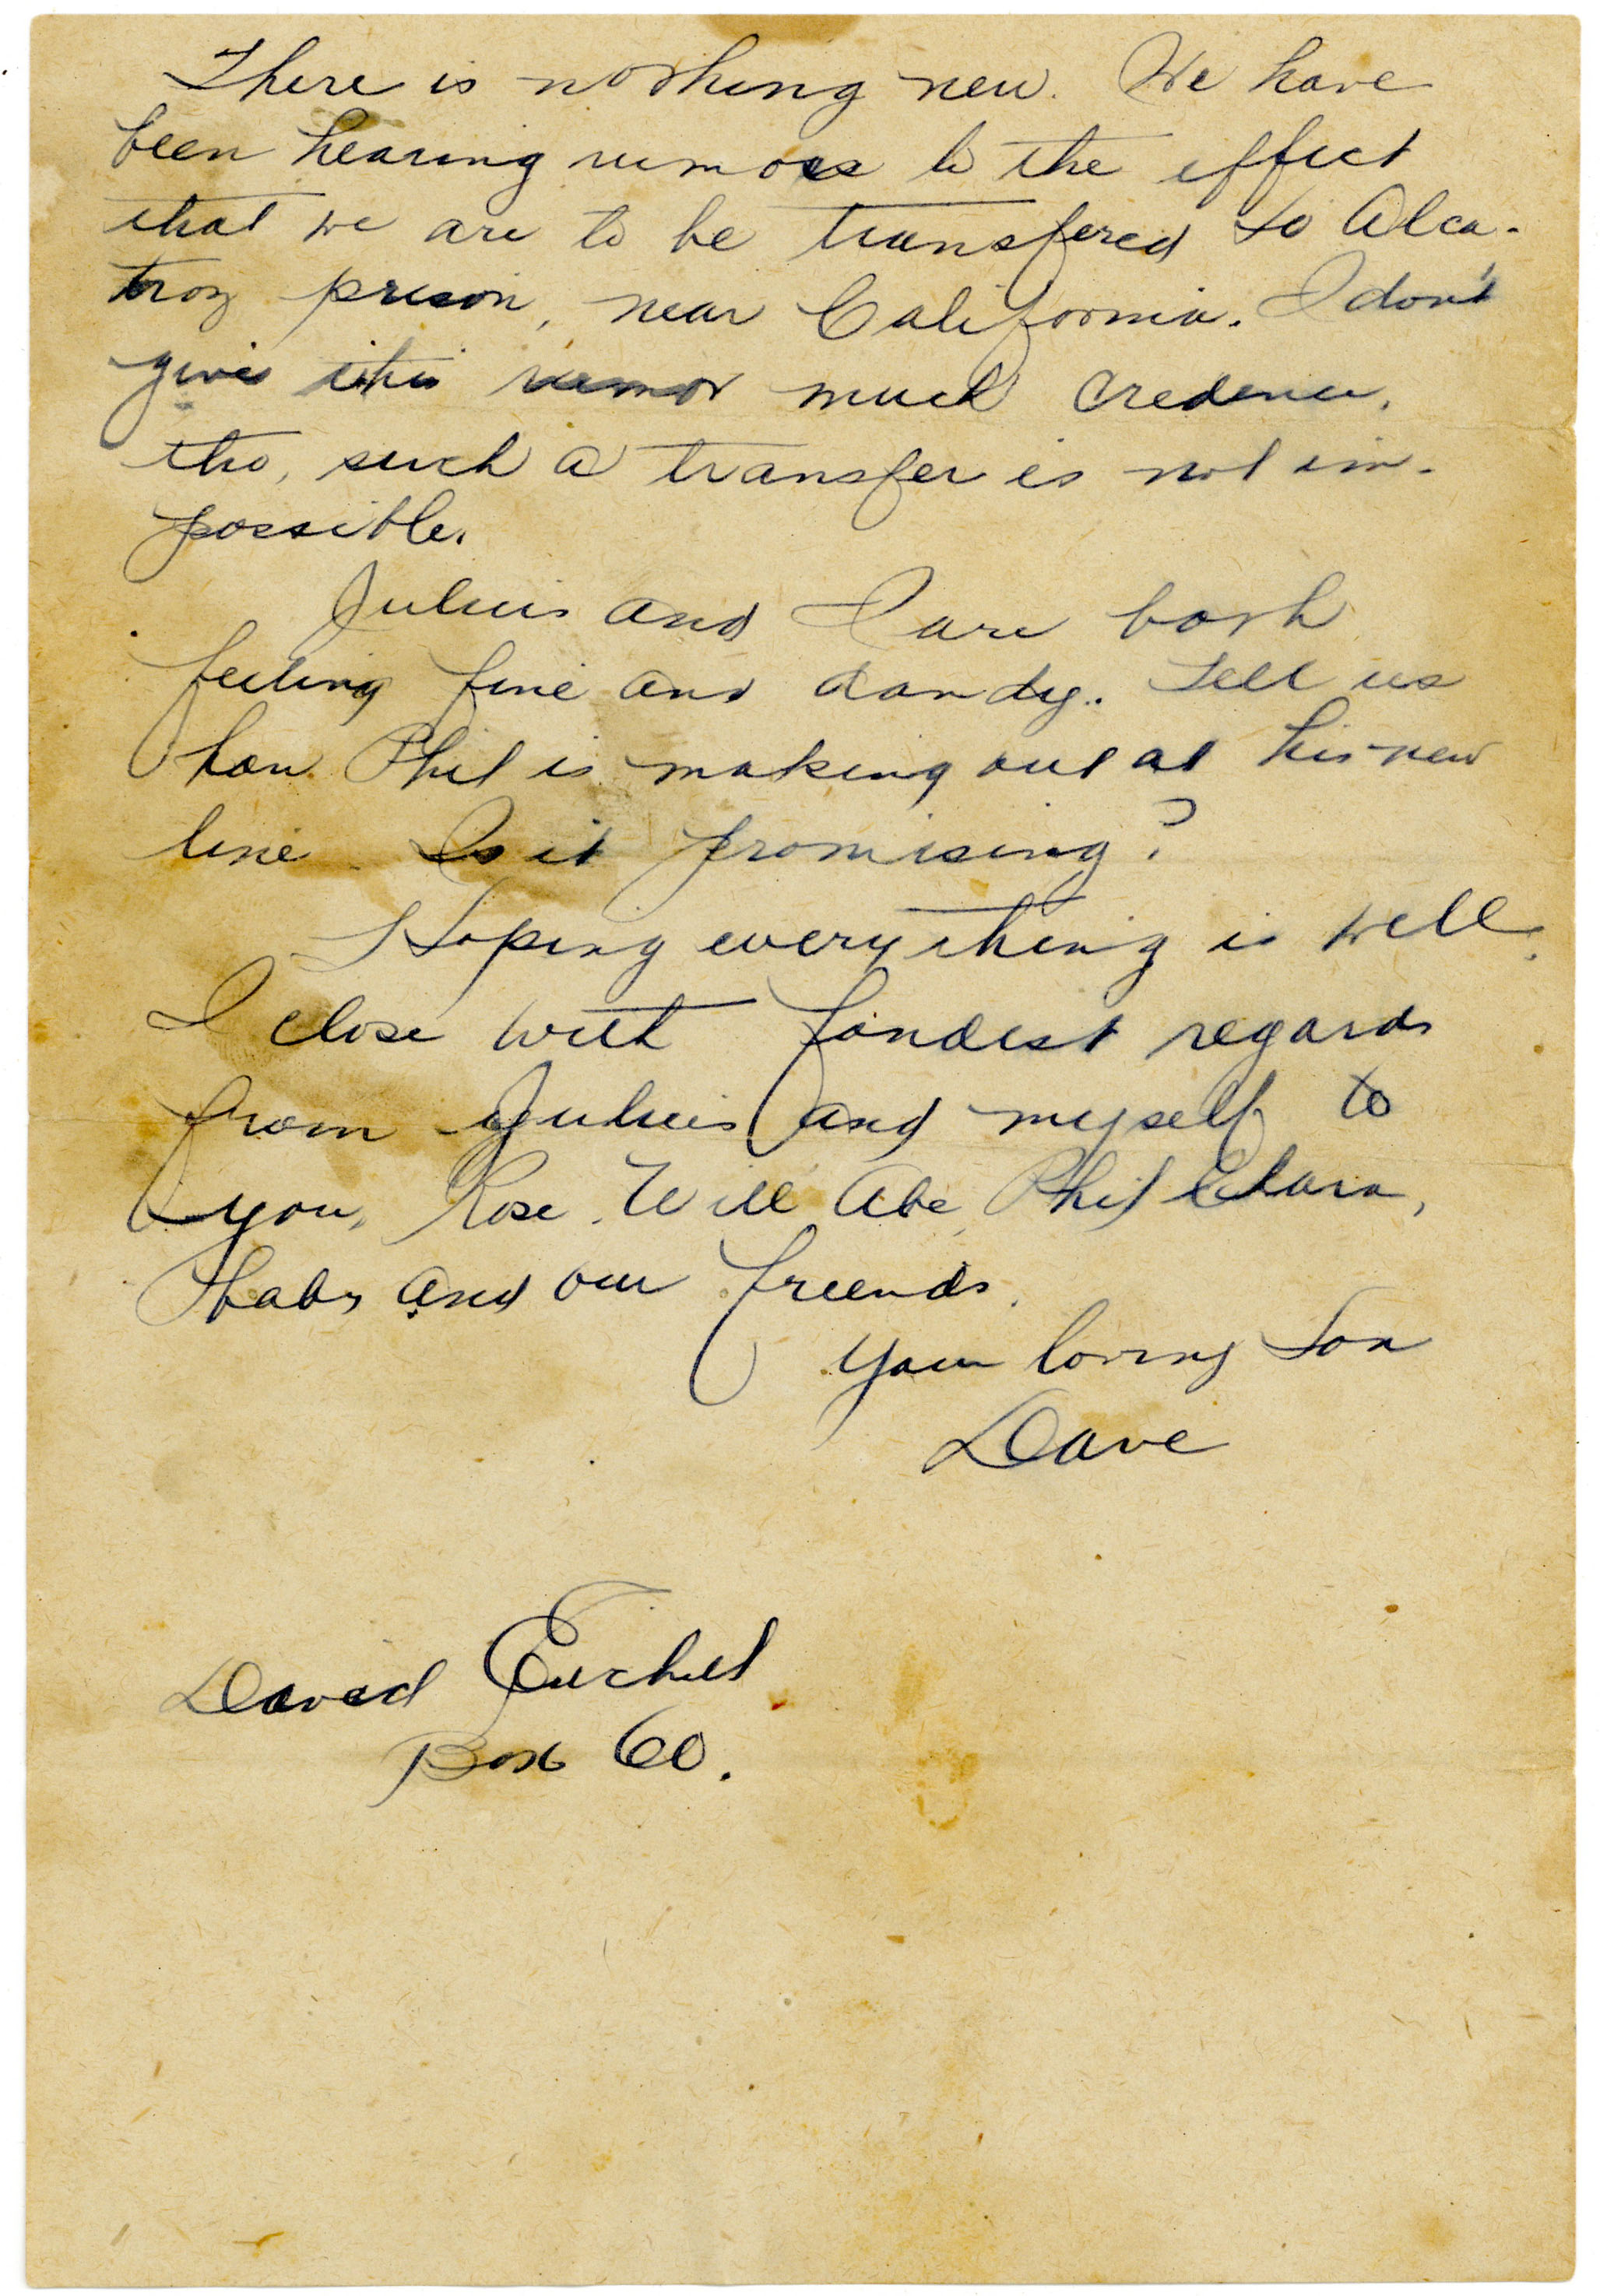 There is nothing new. We have
been hearing rumors to the effect
that we are to be transfered to Alca-
traz prison, near California. I don't
give this rumor much credence,
tho, such a transfer is not im-
possible.
Julius and I are both
feeling fine and dandy. Tell us
how Phil is making out at his new
line. Is it promising?
Hoping everything is well,
I close with fondest regards
from Julius and myself to
you, Rose, Will Abe, Phil Clara,
baby and our friends.
Your loving Son
Dave
David Eichel
Box 60.